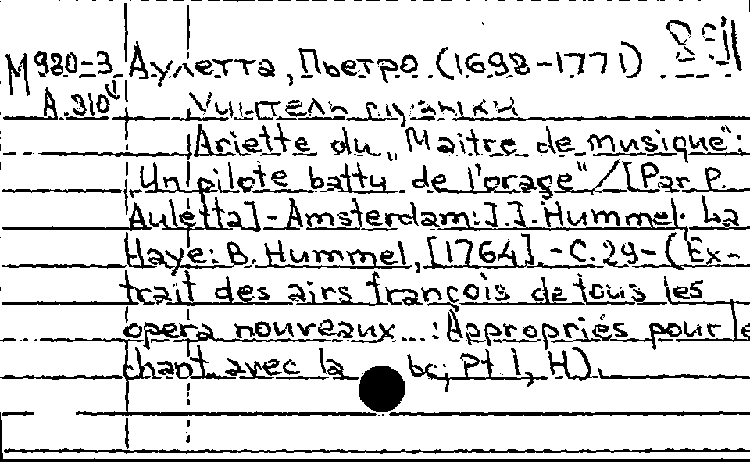 M 980-3 Аулетта, Пьетро (1698-1771)
A.310 Учитель музыки
Ariette du "Maitre de musique":
Un pilote battu de l'orage" / [Par P.
Auletta]-Amsterdam: J.J. Hummel. La
Haye: B. Hummel, [1764].-C.29-(Ex-
trait des airs françois de tous les
opera nouveaux...: Appropriés pour le
chant avec la bc; Pt 1, H).